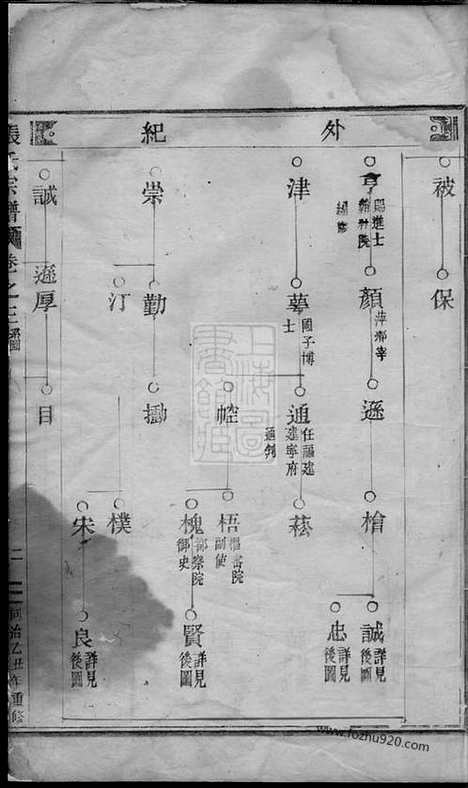 外
紀
被
保
亨
賜進士
翰林院
編修
顏
萍鄉宰
遜
檜
誠
詳見
後圖
忠
詳見
後圖
津
蕚
國子博
士
通
任福建
建寧府
通判
崧
崆
梧
樞密院
副使
槐
都察院
御史
賢
詳見
後圖
崇
勤
汀
勱
樸
宋
良
詳見
後圖
誠
遜厚
目
張氏宗譜
卷之三
二
同治乙丑年重修
上海圖
書館藏
www.fozhu920.com